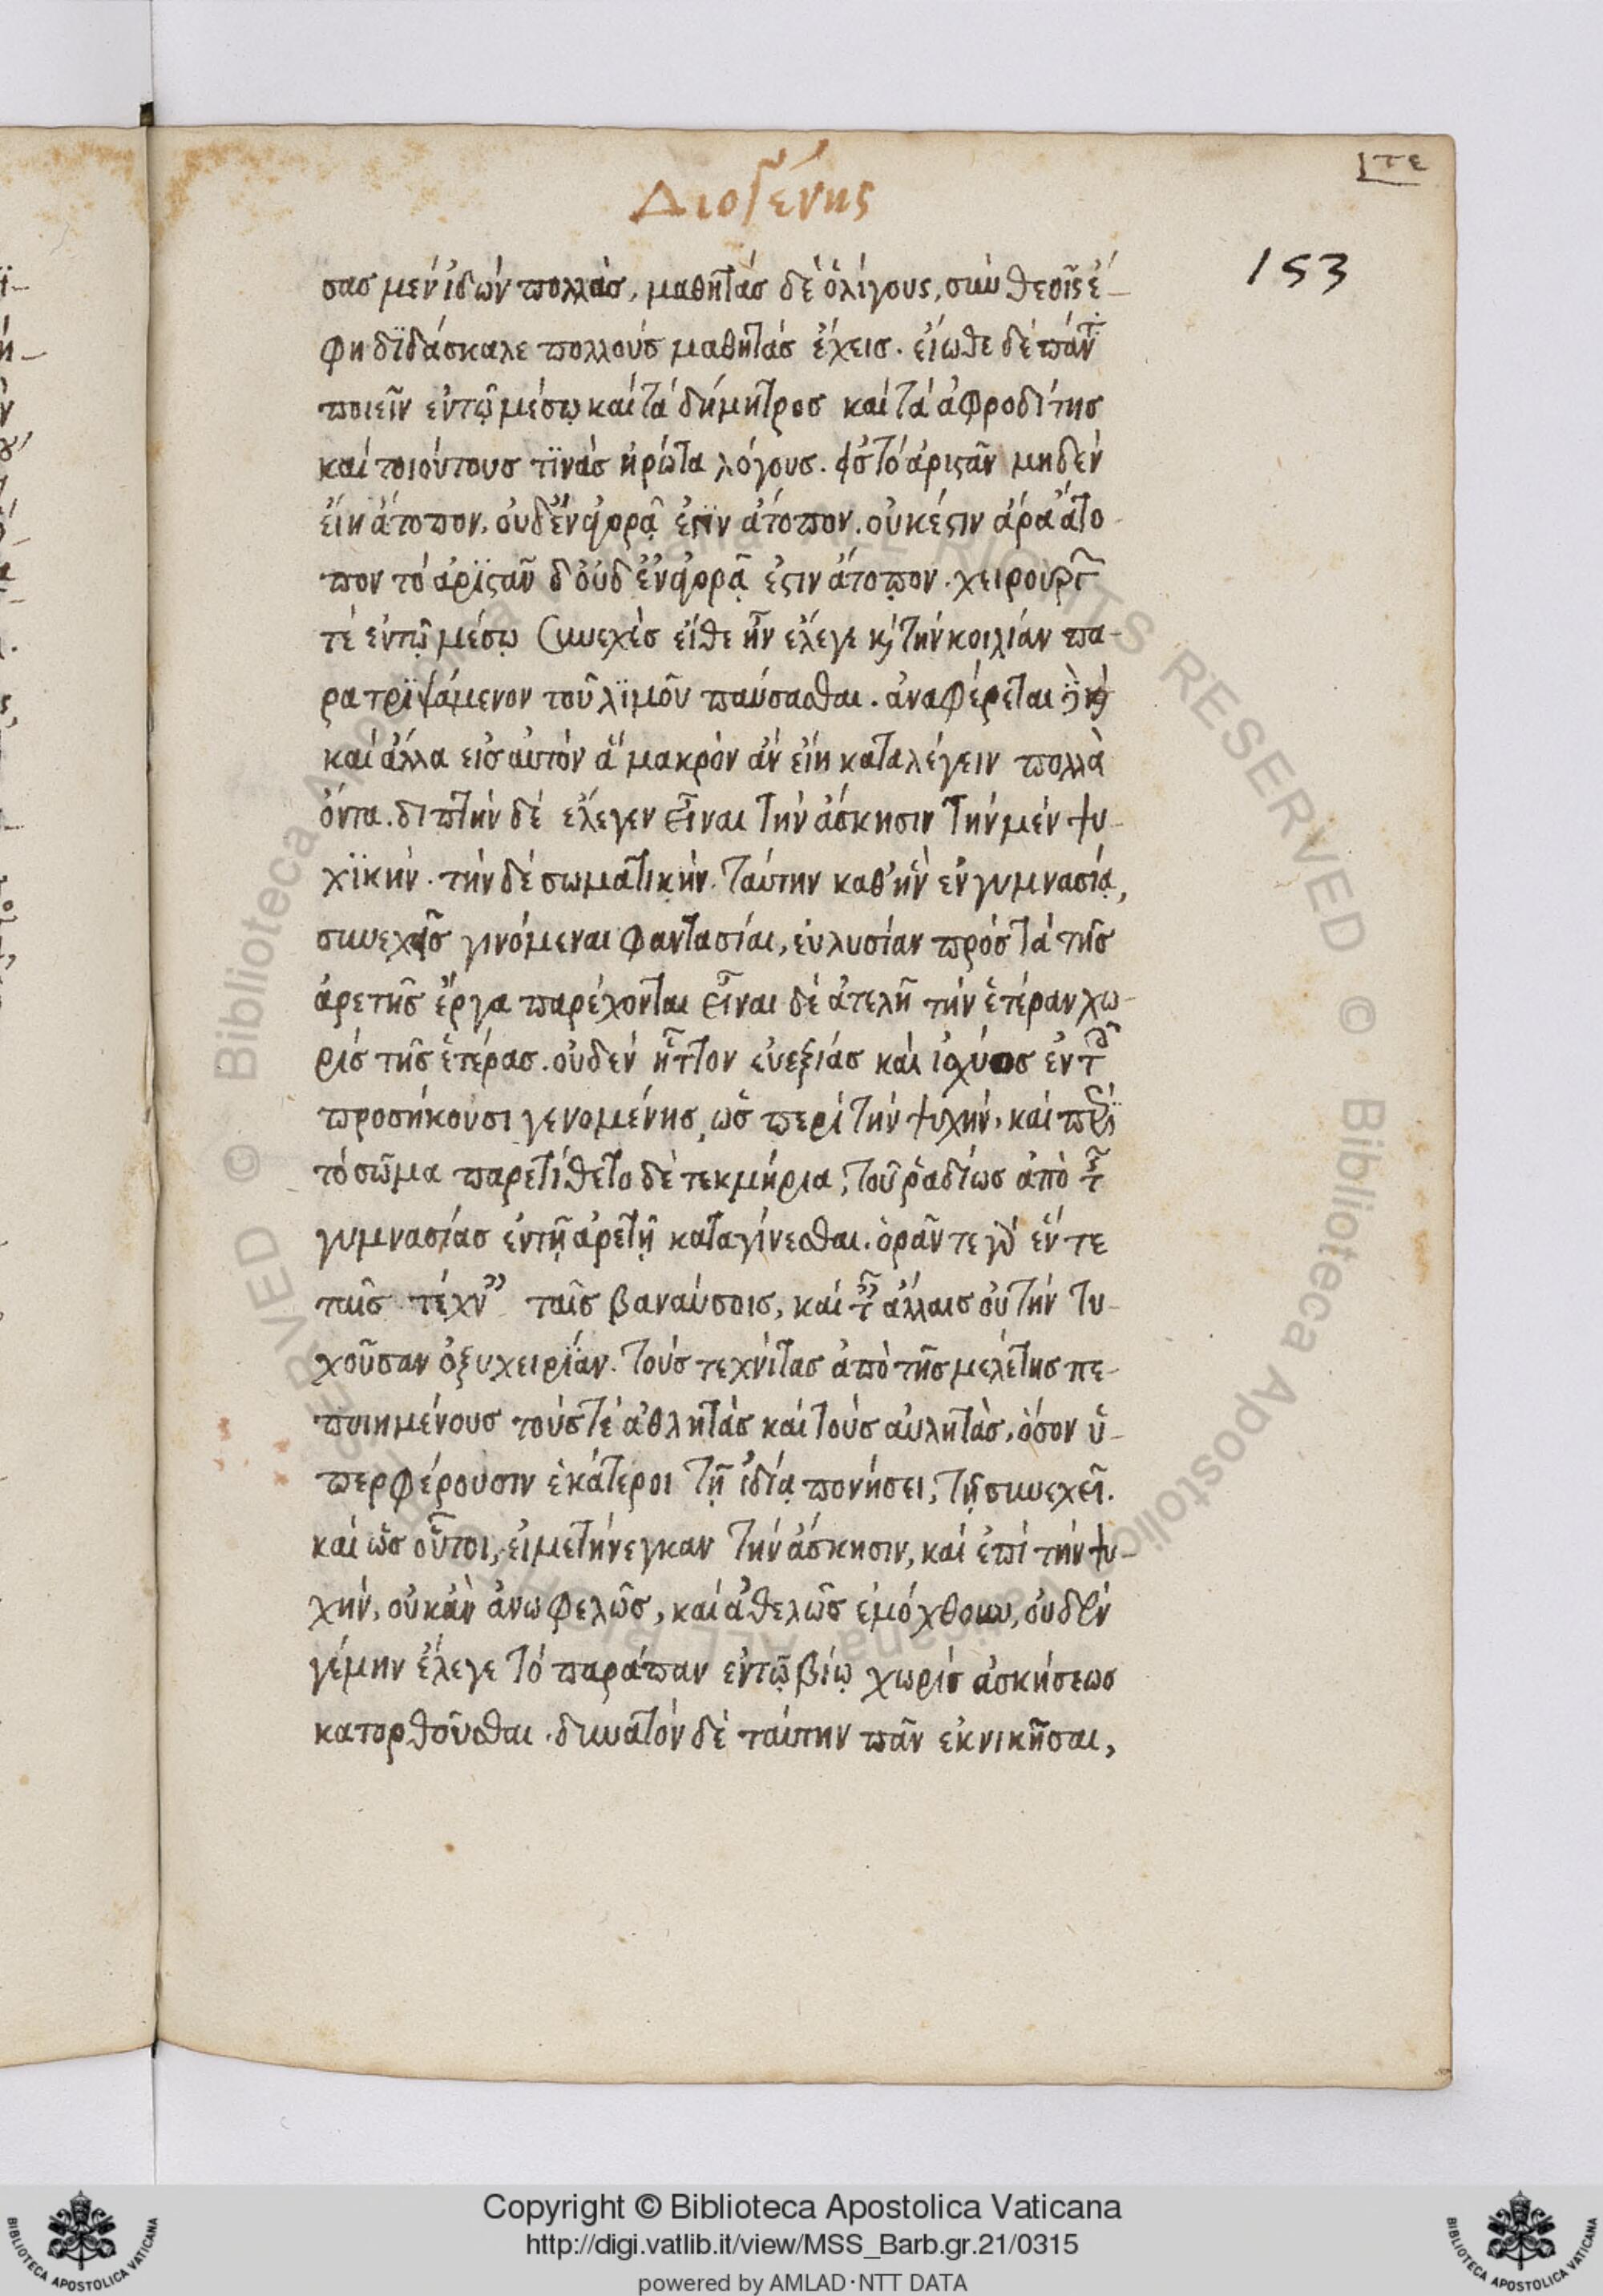 τε
Διογένης
153
σας μὲν ἰδὼν πολλὰς, μαθητὰς δὲ ὀλίγους, σὺν θεοῖς ἔ-
φη διδάσκαλε πολλοὺς μαθητὰς ἔχεις. εἰώθει δὲ πάντ
ποιεῖν ἐν τῷ μέσῳ καὶ τὰ δήμητρος καὶ τὰ ἀφροδίτης
καὶ τοιούτους τϊνὰς ἠρώτα λόγους. τὸ ἀριστᾶν μηδὲν
εἴη ἄτοπον, οὐδ' ἐν ἀγορᾷ ἐστϊν ἄτοπον. οὐκ ἔστιν ἄρα ἄτο
πον τὸ ἀρϊστᾶν οὐδ' ἐν ἀγορᾷ ἐστιν ἄτοπον. χειρουργ
τέ ἐν τῷ μέσῳ συνεχὲς εἴθε ἦν ἔλεγε κὶ τὴν κοιλίαν πα-
ρατρϊψάμενον τοῦ λϊμοῦ παύσασθαι. ἀναφέρεται
καὶ ἄλλα εἰς αὐτὸν ἃ μακρὸν ἂν εἴη καταλέγειν πολλὰ
ὄντα. διττὴν δὲ ἔλεγεν εἶναι τὴν ἄσκησιν τὴν μὲν ψυ-
χϊκήν. τὴν δὲ σωματικήν. ταύτην καθ' ἣν ἐν γυμνασίᾳ,
συνεχεῖς γινόμεναι φαντασίαι, εὐλυσίαν πρὸς τὰ τῆς
ἀρετῆς ἔργα παρέχονται εἶναι δὲ ἀτελῆ τὴν ἑτέραν χω-
ρὶς τῆς ἑτέρας. οὐδὲν ἧττον εὐεξίας καὶ ἰσχύος ἐν τ
προσήκουσι γενομένης, ὡς περὶ τὴν ψυχήν, καὶ περὶ
τὸ σῶμα παρετίθετο δὲ τεκμήρια, τοῦ ῥαδίως ἀπὸ τ
γυμνασίας ἐν τῇ ἀρετῇ καταγίνεσθαι. ὁρᾶν τε γὰρ ἔν τε
ταῖς τέχν ταῖς βαναύσοις, καὶ τ ἄλλαις οὐ τὴν τυ-
χοῦσαν ὀξυχειρΐαν. τοὺς τεχνίτας ἀπὸ τῆς μελέτης πε-
ποιημένους τούς τε ἀθλητὰς καὶ τοὺς αὐλητὰς, ὅσον ὑ-
περφέρουσιν ἑκάτεροι τῇ ἰδίᾳ πονήσει, τῇ συνεχεῖ.
καὶ ὡς οὗτοι, εἰ μετήνεγκαν τὴν ἄσκησιν, καὶ ἐπὶ τὴν ψυ-
χὴν, οὐκ ἂν ἀνωφελῶς, καὶ ἀθελῶς ἐμόχθουν, οὐδέν
γέ μην ἔλεγε τὸ παράπαν ἐν τῷ βίῳ χωρὶς ἀσκήσεως
κατορθοῦσθαι. δυνατὸν δὲ ταύτην πᾶν ἐκνικῆσαι,
Copyright © Biblioteca Apostolica Vaticana
http://digi.vatlib.it/view/MSS_Barb.gr.21/0315
powered by AMLAD·NTT DATA